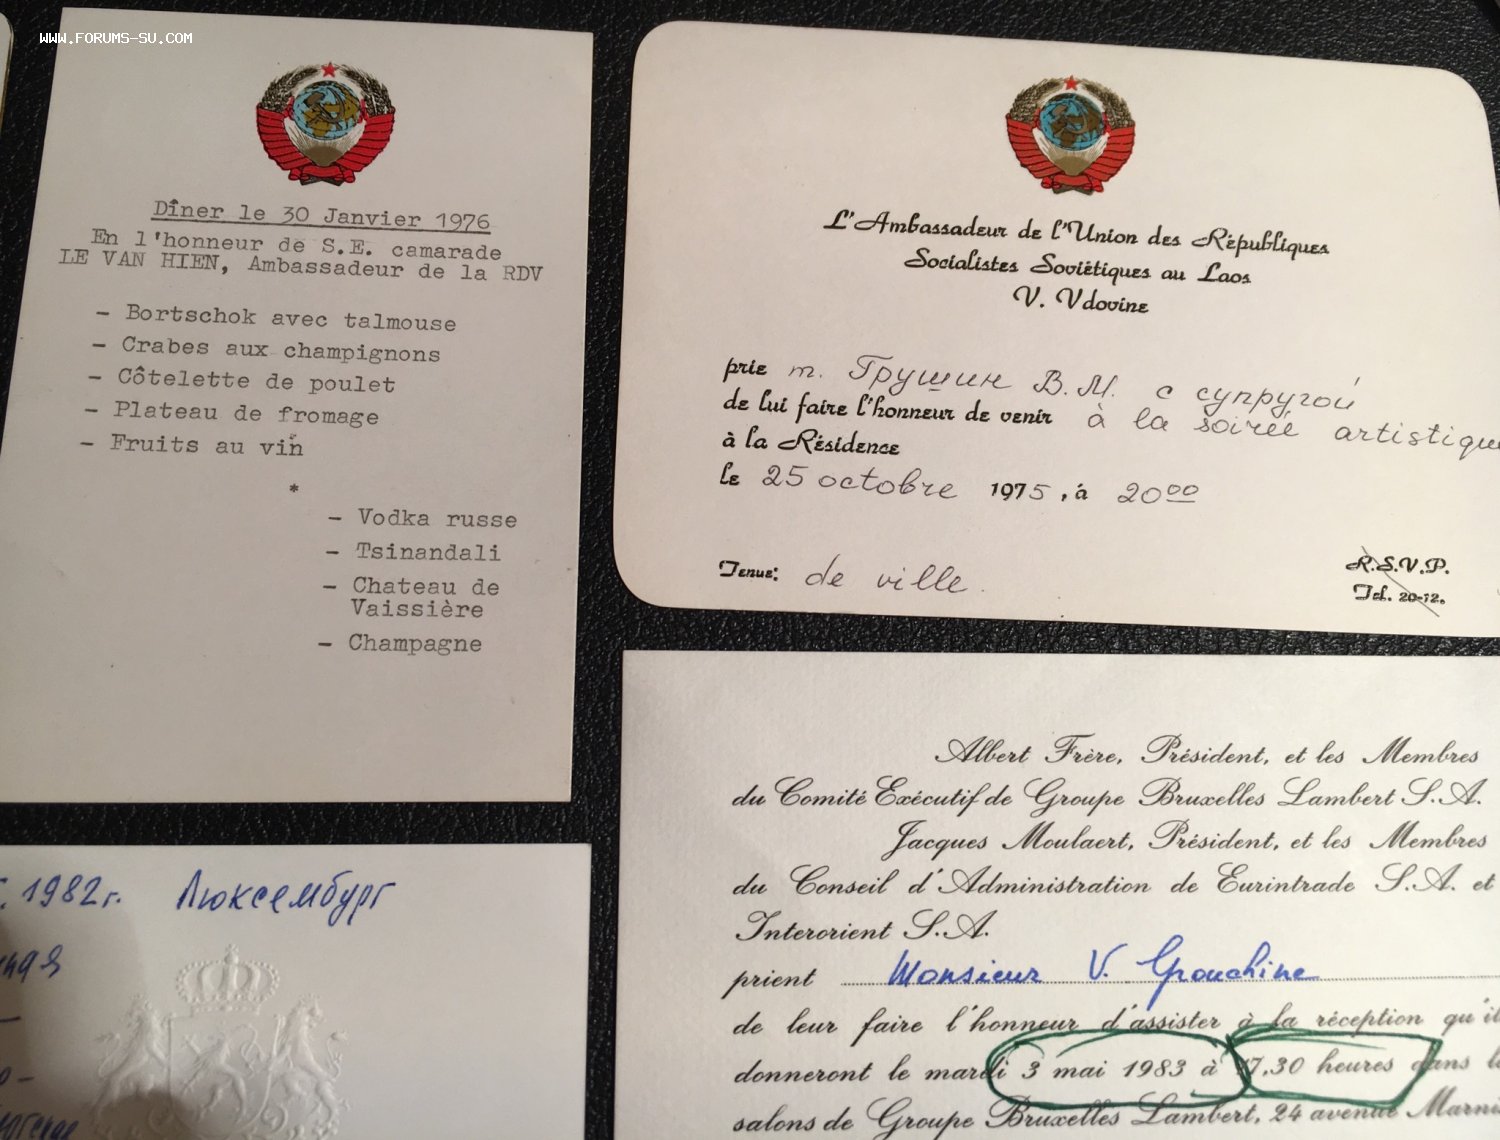 WWW.FORUMS-SU.COM
Dîner le 30 Janvier 1976
En l'honneur de S.E. camarade
LE VAN HIEN, Ambassadeur de la RDV
- Bortschok avec talmouse
- Crabes aux champignons
- Côtelette de poulet
- Plateau de fromage
- Fruits au vin
*
- Vodka russe
- Tsinandali
- Chateau de
Vaissière
- Champagne
L'Ambassadeur de l'Union des Républiques
Socialistes Soviétiques au Laos
V. Vdovine
prie т. Грушин В.М. с супругой
de lui faire l'honneur de venir à la soirée artistique
à la Résidence
le 25 octobre 1975, à 20⁰⁰
Tenue: de ville
R.S.V.P.
Tel. 20-12.
1982г. Люксембург
Albert Frère, Président, et les Membres
du Comité Exécutif de Groupe Bruxelles Lambert S.A.
Jacques Moulaert, Président, et les Membres
du Conseil d'Administration de Eurintrade S.A. et
Interorient S.A.
prient Monsieur V. Grouchine
de leur faire l'honneur d'assister à la réception qu'il
donneront le mardi 3 mai 1983 à 17.30 heures dans
salons de Groupe Bruxelles Lambert, 24 avenue Marni